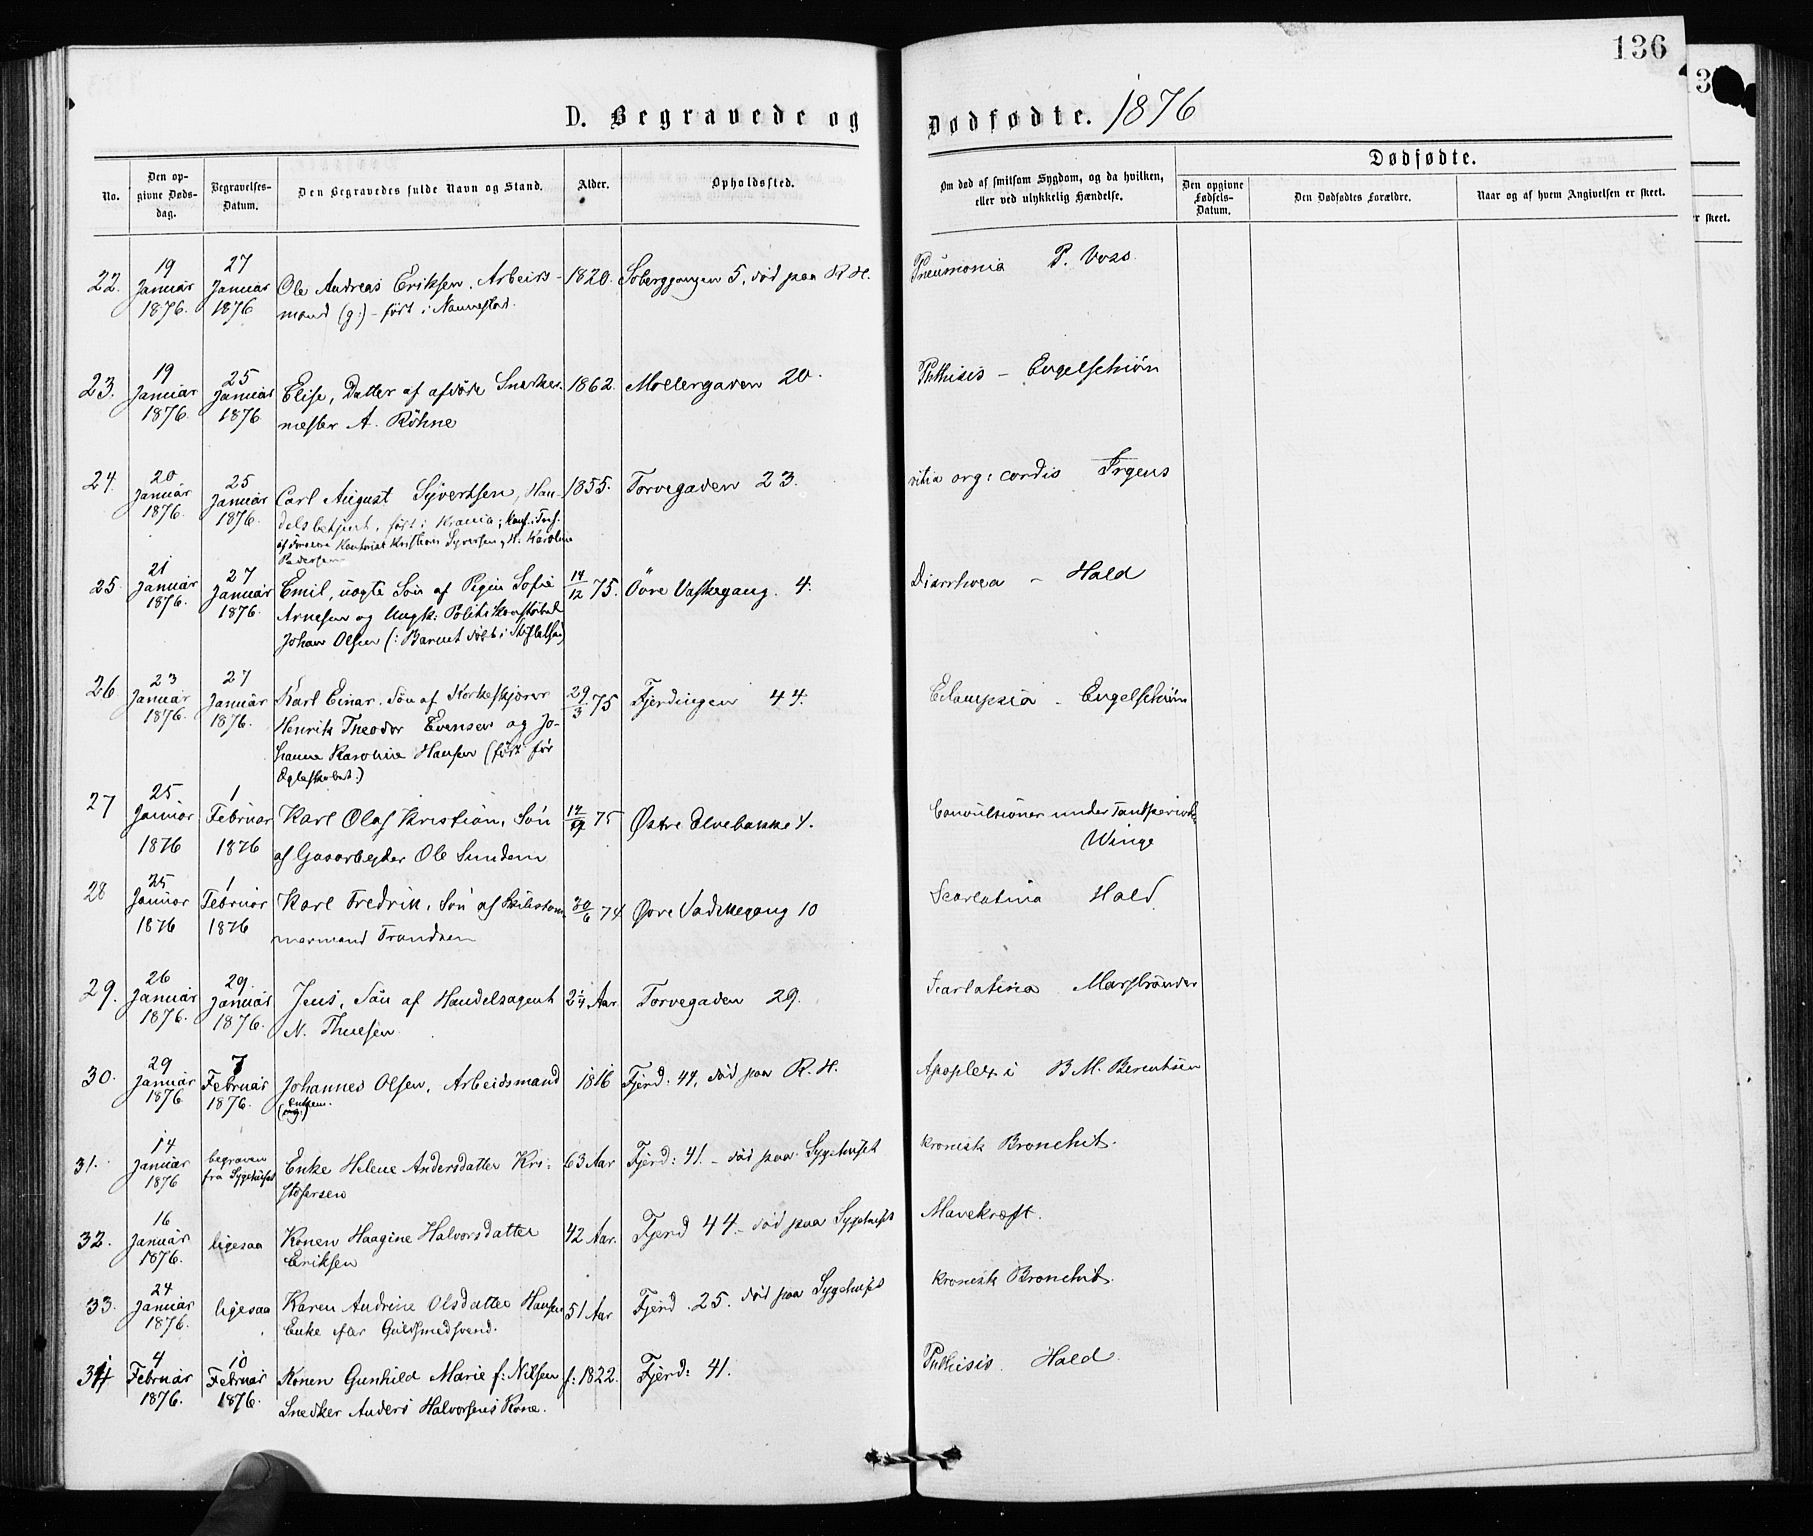 136
D. Begravede og Dødfødte. 1876
No.
Den opgivne Dødsdag.
Begravelses-Datum.
Den Begravedes fulde Navn og Stand.
Alder.
Opholdssted.
Om død af smitsom Sygdom, og da hvilken, eller ved ulykkelig Hændelse.
Dødfødte.
Den opgivne Fødsels-Datum.
Den Dødfødtes Forældre.
Naar og af hvem Angivelsen er skeet.
r skeet.
22. 19 Januar 1876. 27 Januar 1876 Ole Andreas Eriksen, Arbeids- 1820. 5, død paa R.H. Pneumonia P. Voss.
mand (g:) - ført i Nannestad.
23. 19 Januar 1876. 25 Januar 1876 Elise, Datter af afdøde Snedker- 1862. Møllergaden 20. Phthisis - Engelschiøn
mester A. Röhne
24. 20 Januar 1876. 25 Januar 1876. Carl August Syvertsen, Han- 1855. Torvegaden 23. vitia org: cordis Irgens
delsbetjent, født i Krania; Konf. i Tref.
Kristian Syversen og H. Karoline
Pedersen
25. 21 Januar 1876. 27 Januar 1876. Emil, uægte Søn af Pigen Sofie 14/12 75. Øvre Vaskegang. 4. Diarrhoea - Hald
Arnesen og Ungk: Politikonstabel
Johan Olsen (: Barnet døbt i Stiftelsen)
26 23 Januar 1876. 27 Januar 1876. Karl Einar, Søn af Korkeskjærer 29/3 75 Fjerdingen 44. Eclampsia - Engelschiøn
Henrik Theodor Evensen og Jo-
hanne Karoline Hansen (født før
Ægteskabet:)
27 25 Januar 1876 1 Februar 1876 Karl Olaf Kristian, Søn 75 Østre Elvebakke 4. Convulsioner under Tandperiode
af Gasarbejder Ole Sundem Winge
28 25 Januar 1876 1 Februar 1876 Karl Fredrik, Søn af Skibstøm- 30/6 74 Øvre Vaskegang 10 Scarlatina Hald
mermand Trondsen
29. 26 Januar 1876. 29. Januar 1876. Jens, Søn af Handelsagent 2¼ Aar. Torvegaden 29. Scarlatina Marstrander
N. Thuesen.
30. 29 Januar 1876 7 Februar 1876. Johannes Olsen, Arbeidsmand 1816 Fjerd: 44, død paa R.H. Apoplexi B M. Berentsen
31. 14 Januar 1876 begraven fra Sygehuset Enke Helene Andersdatter Kri- 63 Aar Fjerd: 41. - død paa Sygehuset kronisk Bronchit.
stofersen
32. 16 Januar 1876. ligesaa Konen Haagine Halvorsdatter 42 Aar. Fjerd 44 - død paa Sygehuset Mavekræft.
Eriksen
33. 24 Januar 1876. ligesaa Karen Andrine Olsdatter Hansen 51 Aar Fjerd. 25. død paa Sygehuset kronisk Bronchit.
Enke efter Guldsmedsvend.
34 4 Februar 1876. 10 Februar 1876. Konen Gunhild Marie f: Nilsen f: 1822. Fjerd: 41. Phthisis. Hald
Snedker Anders Halvorsens Kone.